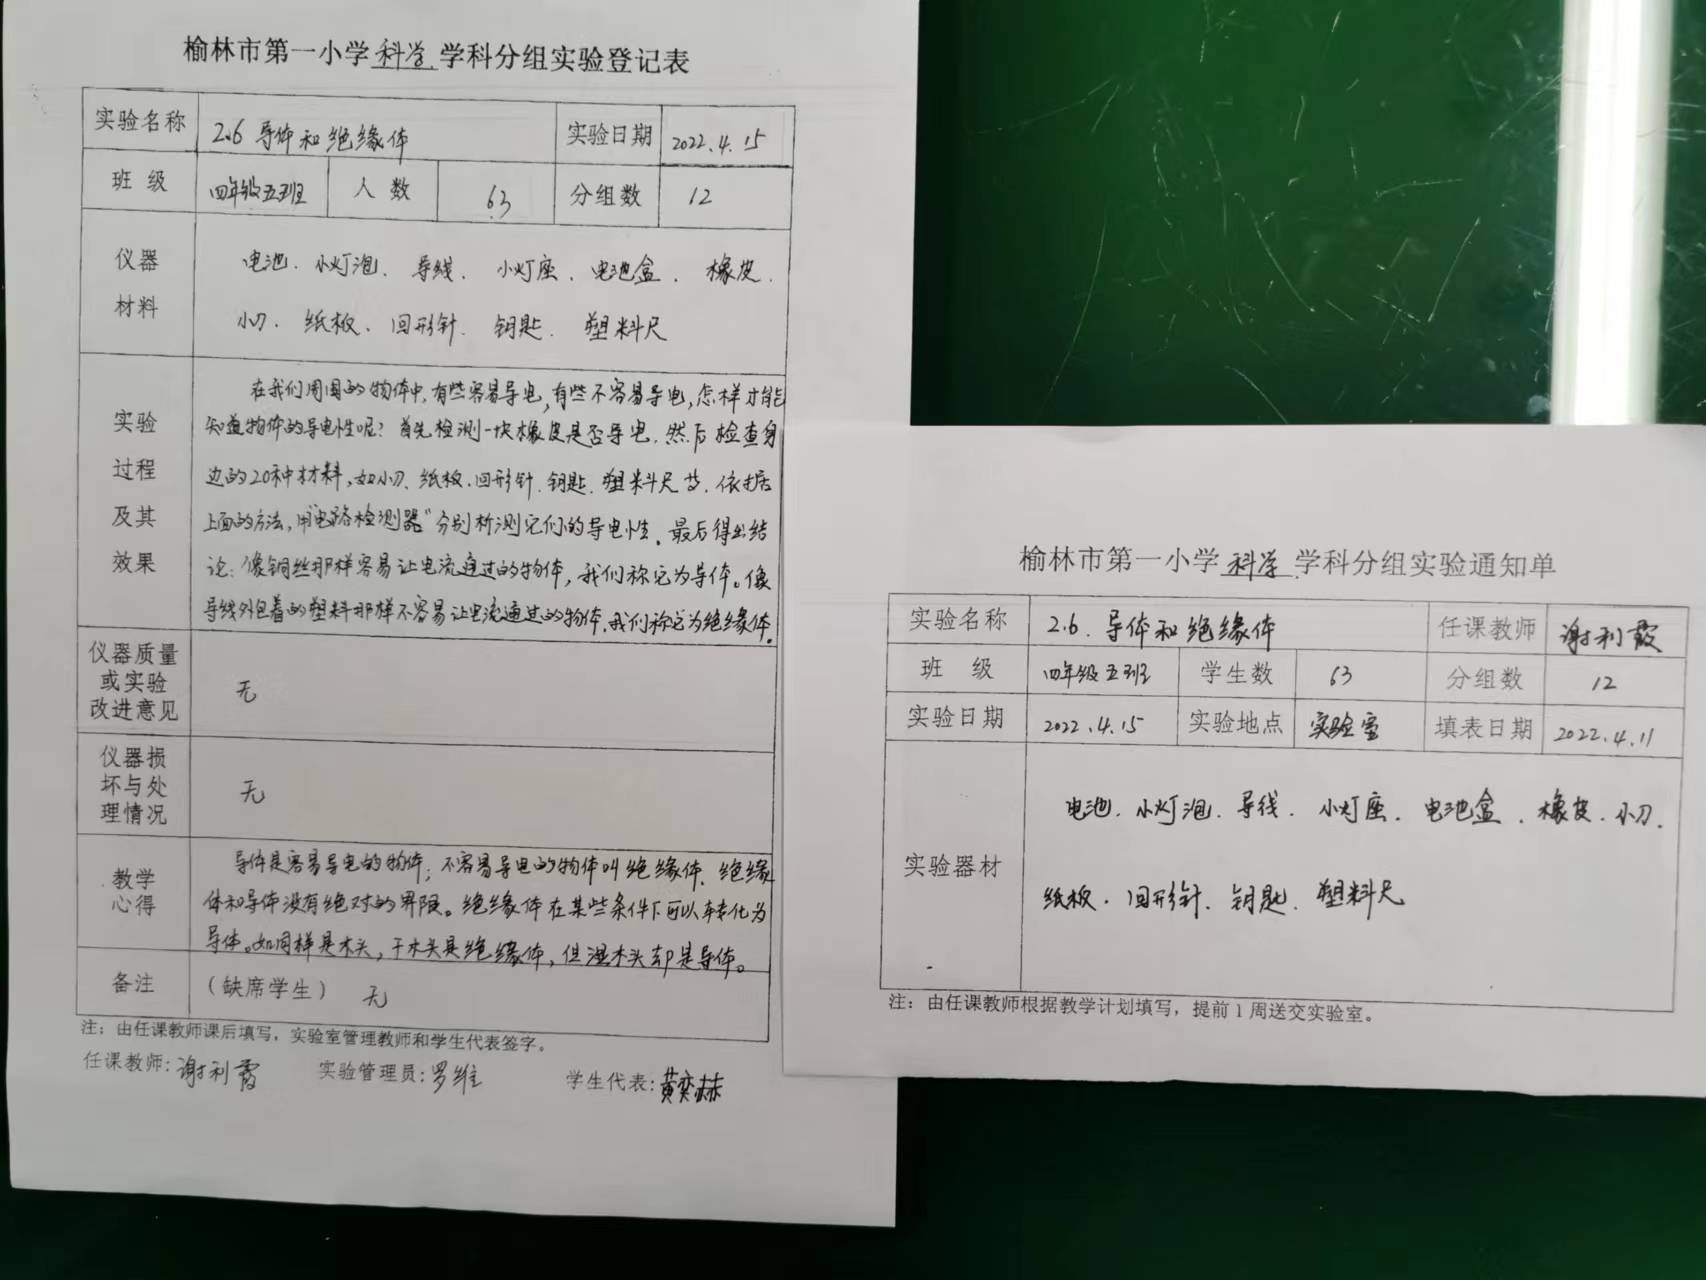 榆林市第一小学科学学科分组实验登记表
实验名称 2.6 导体和绝缘体 实验日期 2022.4.15
班 级 四年级五班 人 数 63 分组数 12
仪器
材料
电池、小灯泡、导线、小灯座、电池盒、橡皮、
小刀、纸板、回形针、钥匙、塑料尺
实验
过程
及其
效果
在我们周围的物体中,有些容易导电,有些不容易导电,怎样才能
知道物体的导电性呢?首先检测一块橡皮是否导电,然后检查身
边的20种材料,如小刀、纸板、回形针、钥匙、塑料尺等,依据
上面的方法,用“电路检测器”分别析测它们的导电性。最后得出结
论:像铜丝那样容易让电流通过的物体,我们称它为导体。像
导线外包着的塑料那样不容易让电流通过的物体,我们称它为绝缘体。
仪器质量
或实验
改进意见
无
仪器损
坏与处
理情况
无
教学
心得
导体是容易导电的物体;不容易导电的物体叫绝缘体、绝缘
体和导体没有绝对的界限。绝缘体在某些条件下可以转化为
导体。如同样是木头,干木头是绝缘体,但湿木头却是导体。
备注 (缺席学生) 无
注:由任课教师课后填写,实验室管理教师和学生代表签字。
任课教师:谢利霞 实验管理员:罗维 学生代表:黄奕赫
榆林市第一小学科学学科分组实验通知单
实验名称 2.6、导体和绝缘体 任课教师 谢利霞
班 级 四年级五班 学生数 63 分组数 12
实验日期 2022.4.15 实验地点 实验室 填表日期 2022.4.11
实验器材
电池、小灯泡、导线、小灯座、电池盒、橡皮、小刀、
纸板、回形针、钥匙、塑料尺
注:由任课教师根据教学计划填写,提前1周送交实验室。